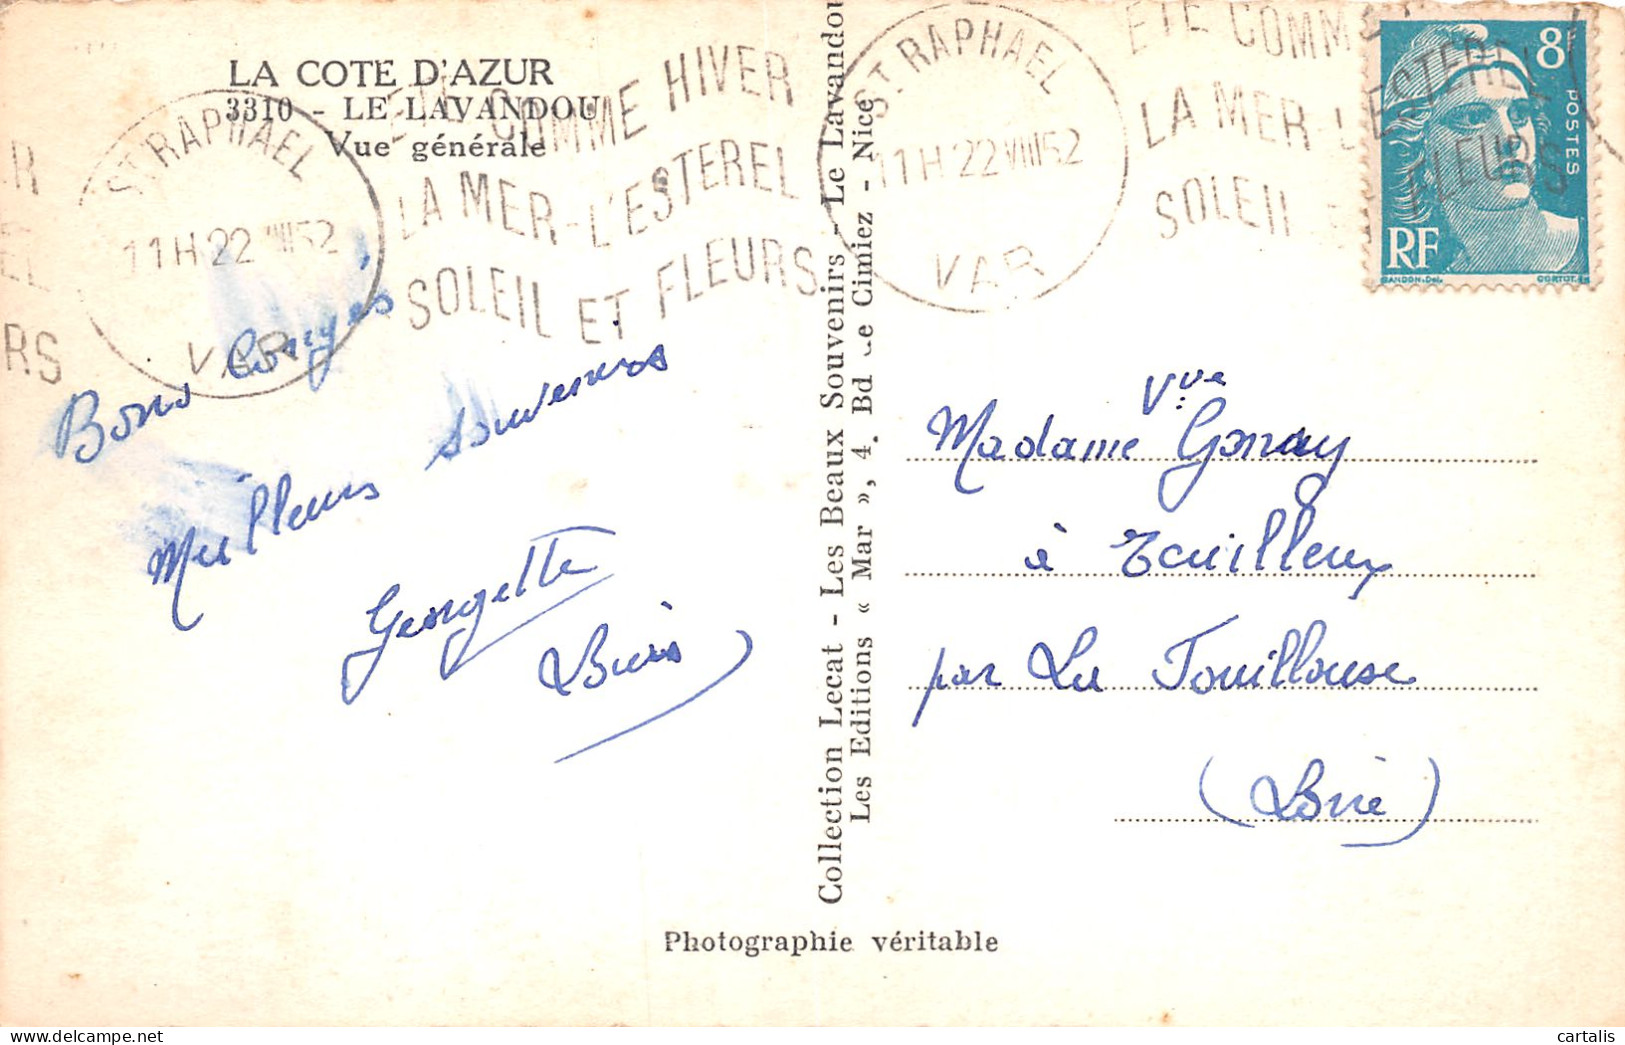 LA COTE D'AZUR
3310 - LE LAVANDOU
Vue générale
ST RAPHAEL
11H 22 VIII 52
VAR
ETE COMME HIVER
LA MER-L'ESTEREL
SOLEIL ET FLEURS
ST RAPHAEL
11H 22 VIII 52
VAR
ETE COMM
LA MER-L'ESTEREL
SOLEIL E FLEURS
8F
POSTES
RF
GANDON.Del.
CORTOT.
ER
EL
RS
Bons Congés
Meilleurs souvenirs
Georgette
Collection Lecat - Les Beaux Souvenirs - Le Lavandou
Les Editions « Mar », 4. Bd de Cimiez - Nice
Vve
Madame Gonay
à
par La Touillouse
(Loire)
Photographie véritable
cartalis